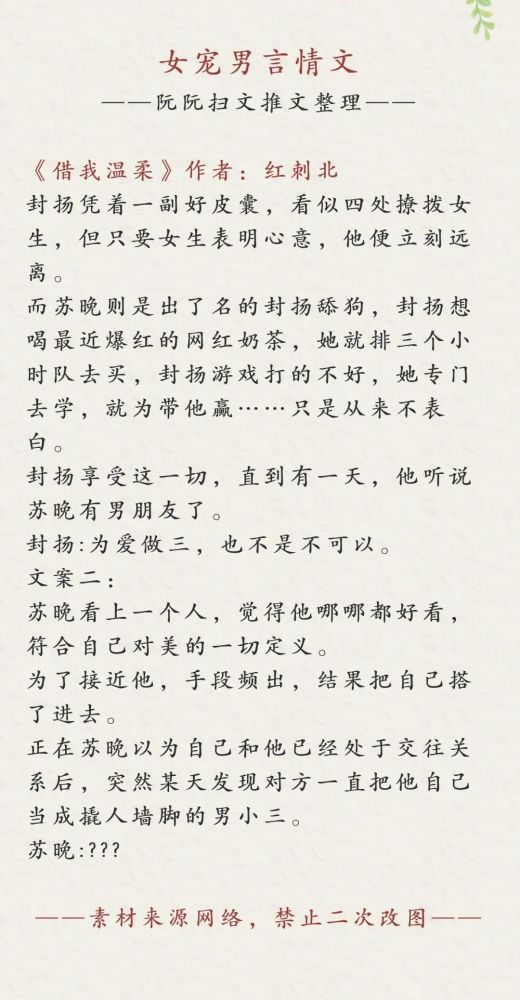 女宠男言情文
——阮阮扫文推文整理——
《借我温柔》作者：红刺北
封扬凭着一副好皮囊，看似四处撩拨女
生，但只要女生表明心意，他便立刻远
离。
而苏晚则是出了名的封扬舔狗，封扬想
喝最近爆红的网红奶茶，她就排三个小
时队去买，封扬游戏打的不好，她专门
去学，就为带他赢……只是从来不表
白。
封扬享受这一切，直到有一天，他听说
苏晚有男朋友了。
封扬:为爱做三，也不是不可以。
文案二：
苏晚看上一个人，觉得他哪哪都好看，
符合自己对美的一切定义。
为了接近他，手段频出，结果把自己搭
了进去。
正在苏晚以为自己和他已经处于交往关
系后，突然某天发现对方一直把他自己
当成撬人墙脚的男小三。
苏晚:???
——素材来源网络，禁止二次改图——